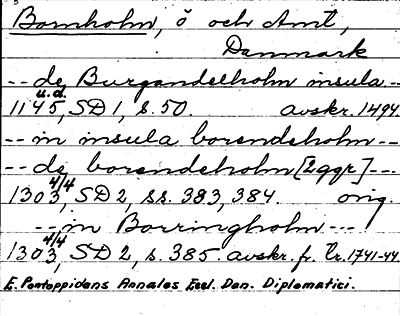 Bornholm, ö och Amt,
Danmark
-- de Burgandeholm insula --
u.d.
1145, SD 1, s. 50. avskr. 1494
-- in insula borendeholm --
-- de borendeholm [2ggr] ---
1303 4/4, SD 2, ss. 383, 384. orig.
-- in Borringholm --- !
1303 4/4, SD 2, s. 385. avskr. fr. Tr. 1741-44
E. Pontoppidans Annales Eccl. Dan. Diplomatici.